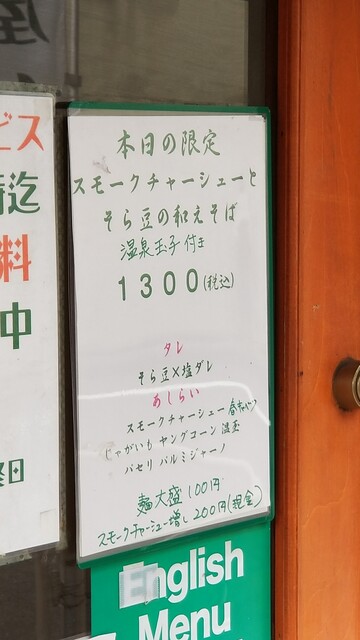 本日の限定
スモークチャーシューと
そら豆の和えそば
温泉玉子付き
1300(税込)
タレ
そら豆×塩ダレ
あしらい
スモークチャーシュー 春キャベツ
じゃがいも ヤングコーン 温玉
パセリ パルミジャーノ
麺大盛 100円
スモークチャーシュー増し 200円(現金)
ビス
料
中
English
Menu